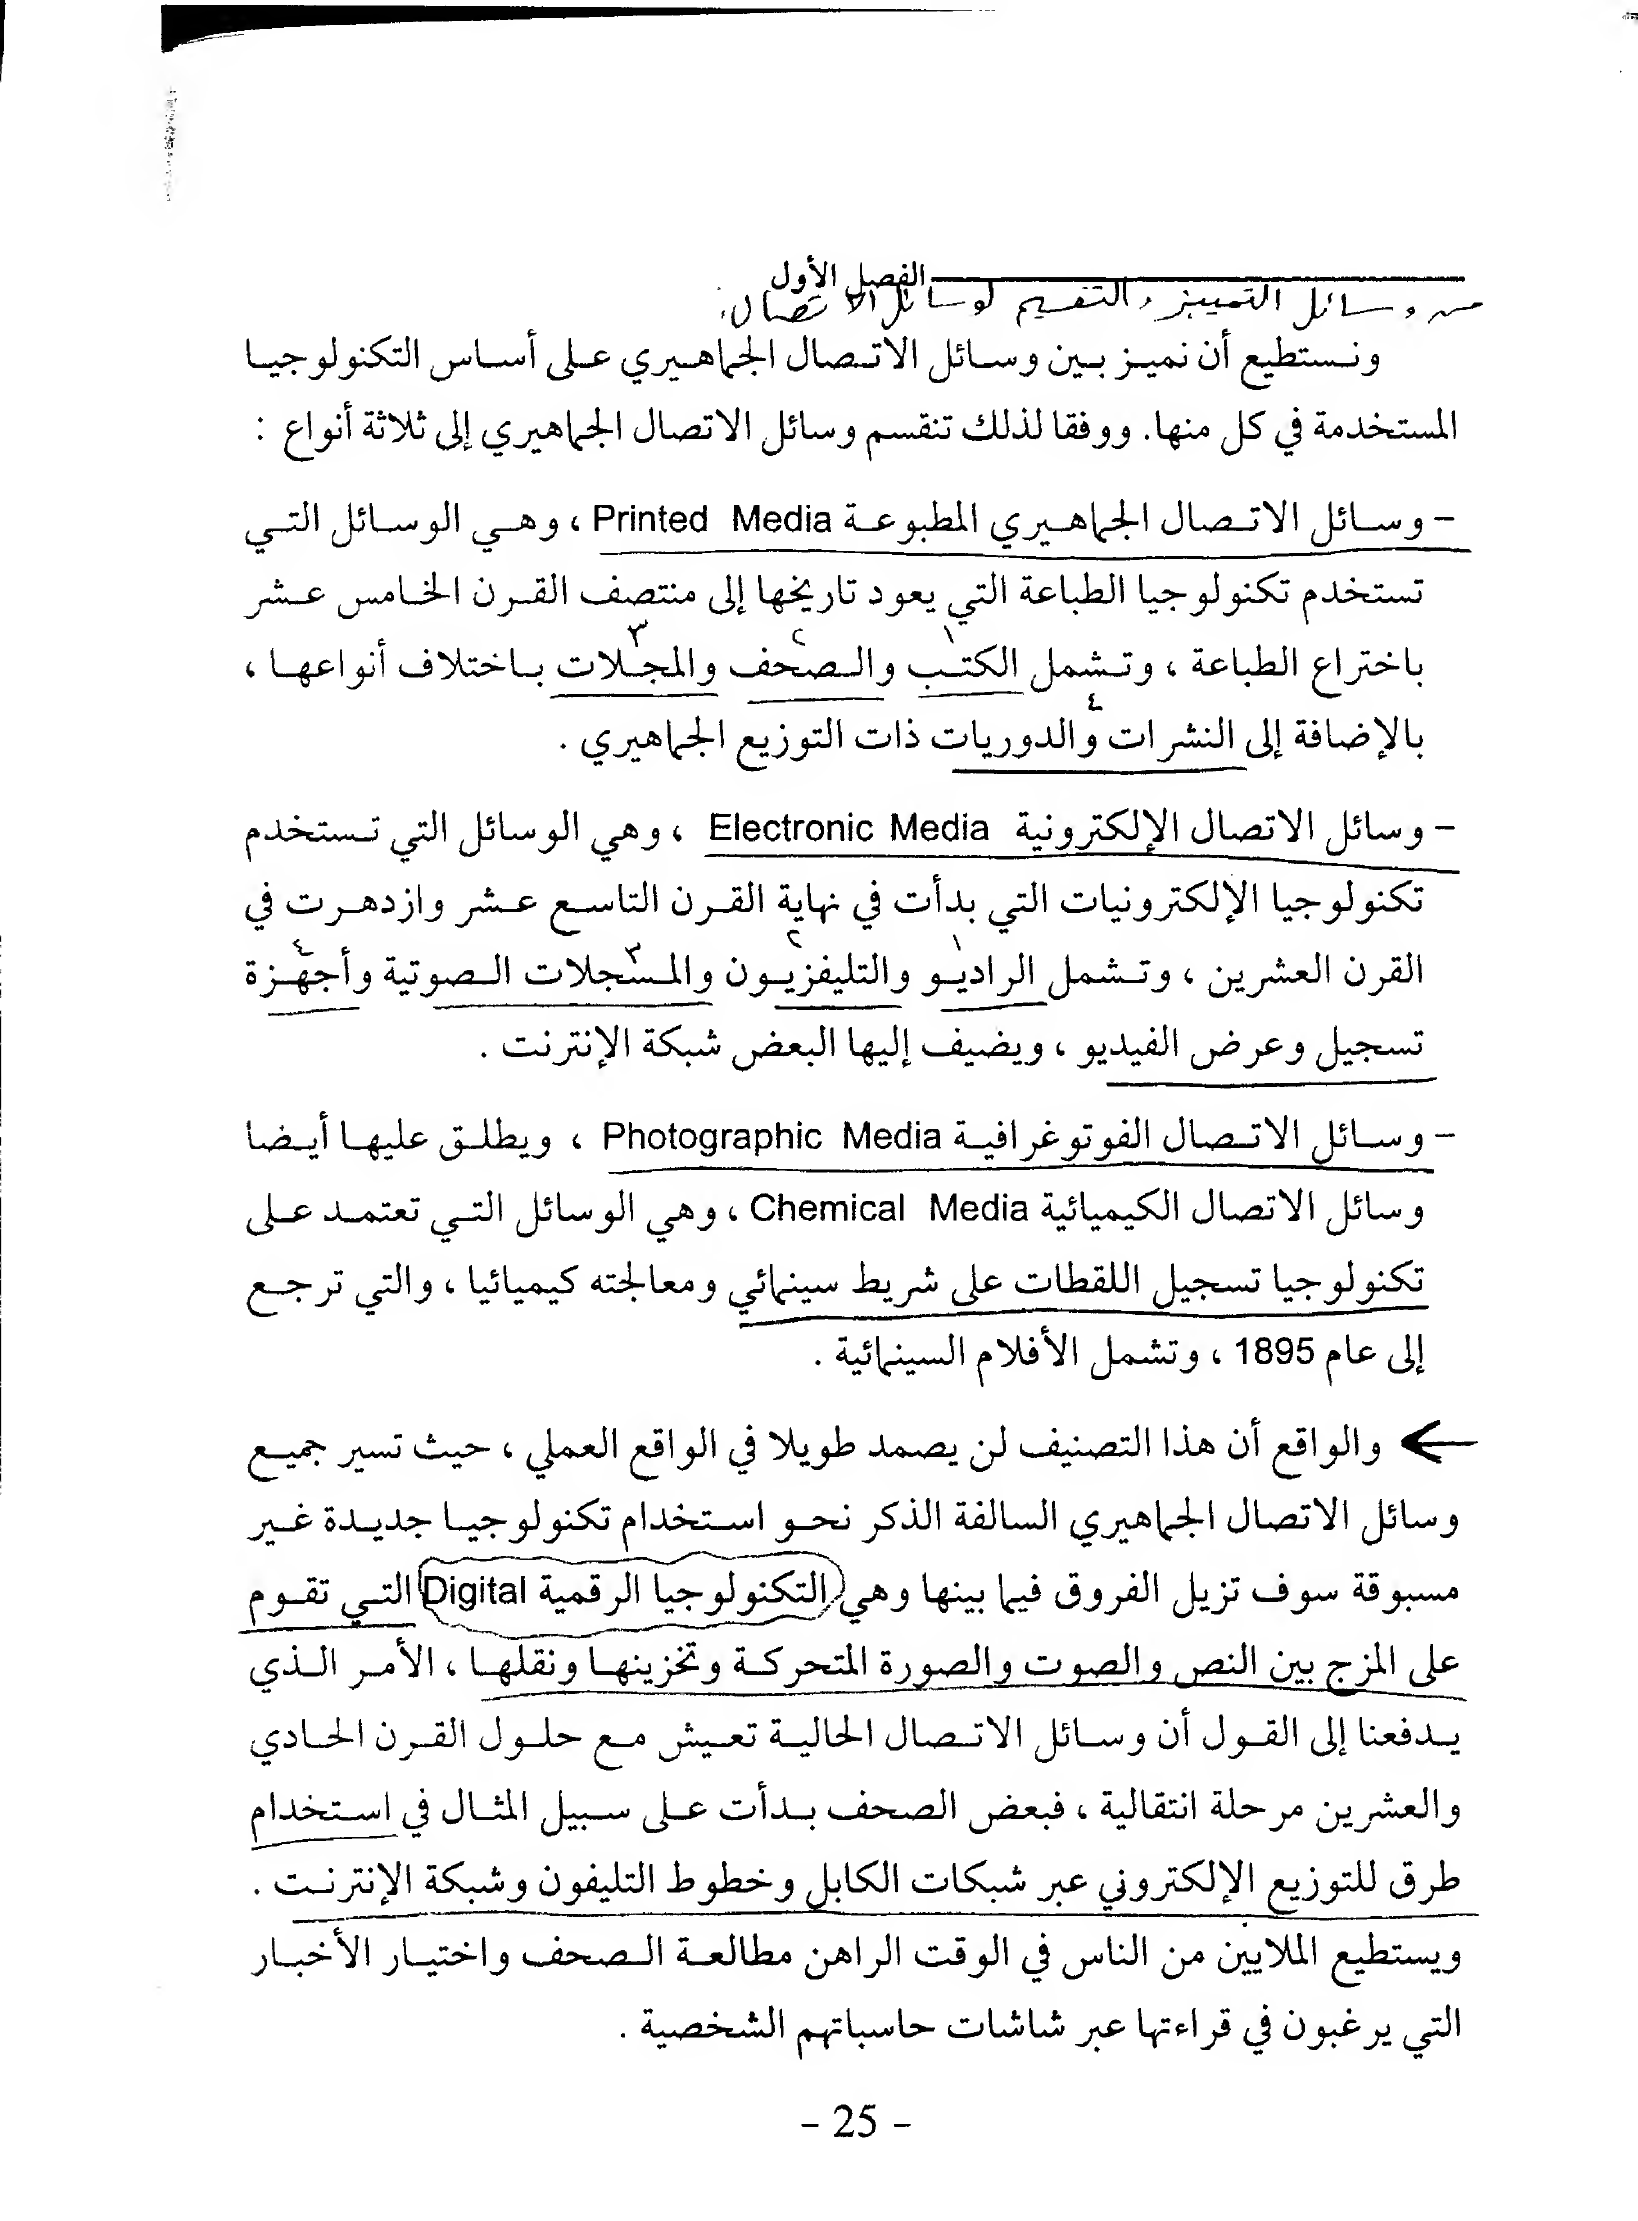 الفصل الأول
وسائل التمييز والتقسيم لوسائل الاتصال:
ونستطيع أن نميز بين وسائل الاتصال الجماهيري على أساس التكنولوجيا
المستخدمة في كل منها. ووفقا لذلك تنقسم وسائل الاتصال الجماهيري إلى ثلاثة أنواع :
– وسائل الاتصال الجماهيري المطبوعة Printed Media ، وهي الوسائل التي
تستخدم تكنولوجيا الطباعة التي يعود تاريخها إلى منتصف القرن الخامس عشر
١ ٢ ٣
باختراع الطباعة ، وتشمل الكتب والصحف والمجلات باختلاف أنواعها ،
٤
بالإضافة إلى النشرات والدوريات ذات التوزيع الجماهيري .
– وسائل الاتصال الإلكترونية Electronic Media ، وهي الوسائل التي تستخدم
تكنولوجيا الإلكترونيات التي بدأت في نهاية القرن التاسع عشر وازدهرت في
١ ٢ ٣ ٤
القرن العشرين ، وتشمل الراديو والتليفزيون والمسجلات الصوتية وأجهزة
تسجيل وعرض الفيديو ، ويضيف إليها البعض شبكة الإنترنت .
– وسائل الاتصال الفوتوغرافية Photographic Media ، ويطلق عليها أيضا
وسائل الاتصال الكيميائية Chemical Media ، وهي الوسائل التي تعتمد على
تكنولوجيا تسجيل اللقطات على شريط سينمائي ومعالجته كيميائيا ، والتي ترجع
إلى عام 1895 ، وتشمل الأفلام السينمائية .
والواقع أن هذا التصنيف لن يصمد طويلا في الواقع العملي ، حيث تسير جميع
وسائل الاتصال الجماهيري السالفة الذكر نحو استخدام تكنولوجيا جديدة غير
مسبوقة سوف تزيل الفروق فيما بينها وهي التكنولوجيا الرقمية Digital التي تقوم
على المزج بين النص والصوت والصورة المتحركة وتخزينها ونقلها ، الأمر الذي
يدفعنا إلى القول أن وسائل الاتصال الحالية تعيش مع حلول القرن الحادي
والعشرين مرحلة انتقالية ، فبعض الصحف بدأت على سبيل المثال في استخدام
طرق للتوزيع الإلكتروني عبر شبكات الكابل وخطوط التليفون وشبكة الإنترنت .
ويستطيع الملايين من الناس في الوقت الراهن مطالعة الصحف واختيار الأخبار
التي يرغبون في قراءتها عبر شاشات حاسباتهم الشخصية .
- 25 -